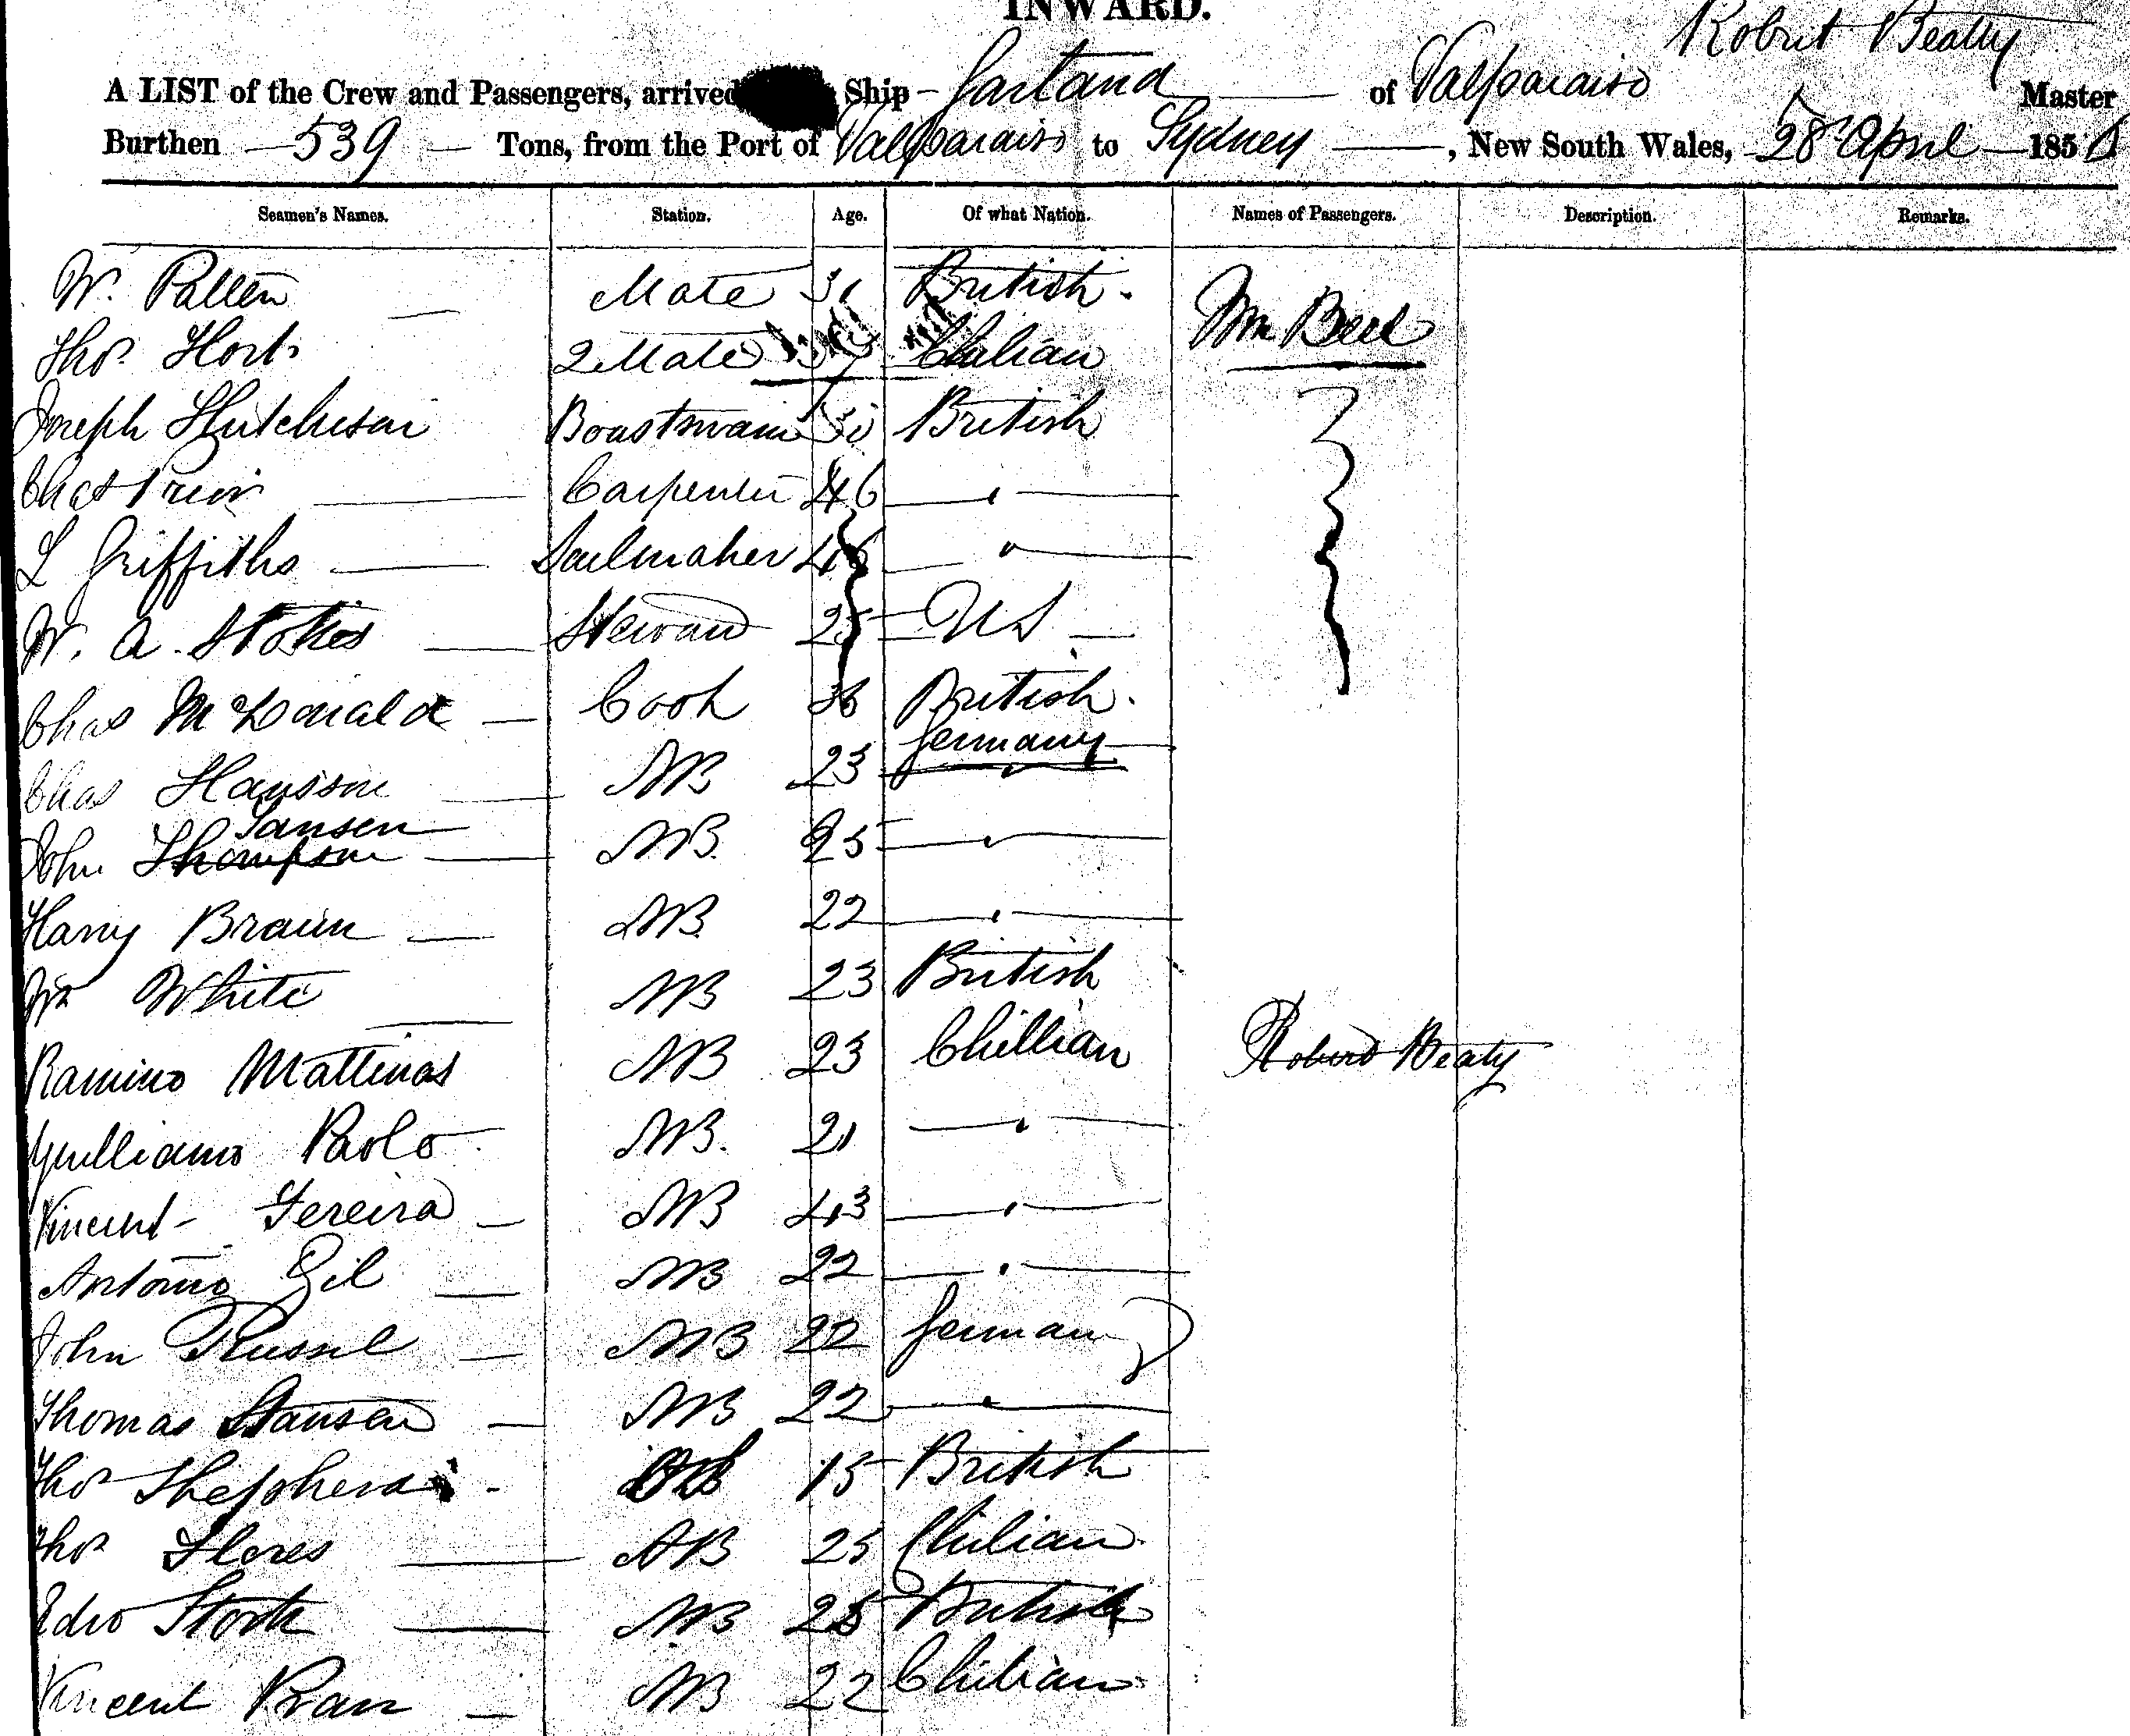 INWARD.
Robert Beatty
A LIST of the Crew and Passengers, arrived Ship Gartand of Valparaiso Master
Burthen 539 Tons, from the Port of Valparaiso to Sydney, New South Wales, 28 April 185
Seamen's Names. Station. Age. Of what Nation. Names of Passengers. Description. Remarks.
W. Pallen Mate 31 British. Mr Beel
Thos. Hort 2 Mate 37 Chilian
Joseph Hutchison Boastswain 30 British
Chas Carpenter 46 "
L Griffiths Sailmaker 46 "
W. A. Stokes Steward 25 US
Chas McDonald Cook 36 British.
Chas Hansson AB 23 Germany "
Jansen
John Thompson AB. 25 "
Harry Braun AB. 22 "
Wm White AB 23 British
Ramino Mattinas AB 23 Chillian Robert Beaty
Gulliamo Paolo AB. 21 "
Vincent Fereira AB 43 "
Antonio Gil AB 22 "
John Russel AB 22 German
Thomas Stausen AB 22 "
Thos Shepherd OS 15 British
Thos Flores AB 25 Chilian
Edwd Stork AB 25 British
Vincent Ran AB 22 Chilian